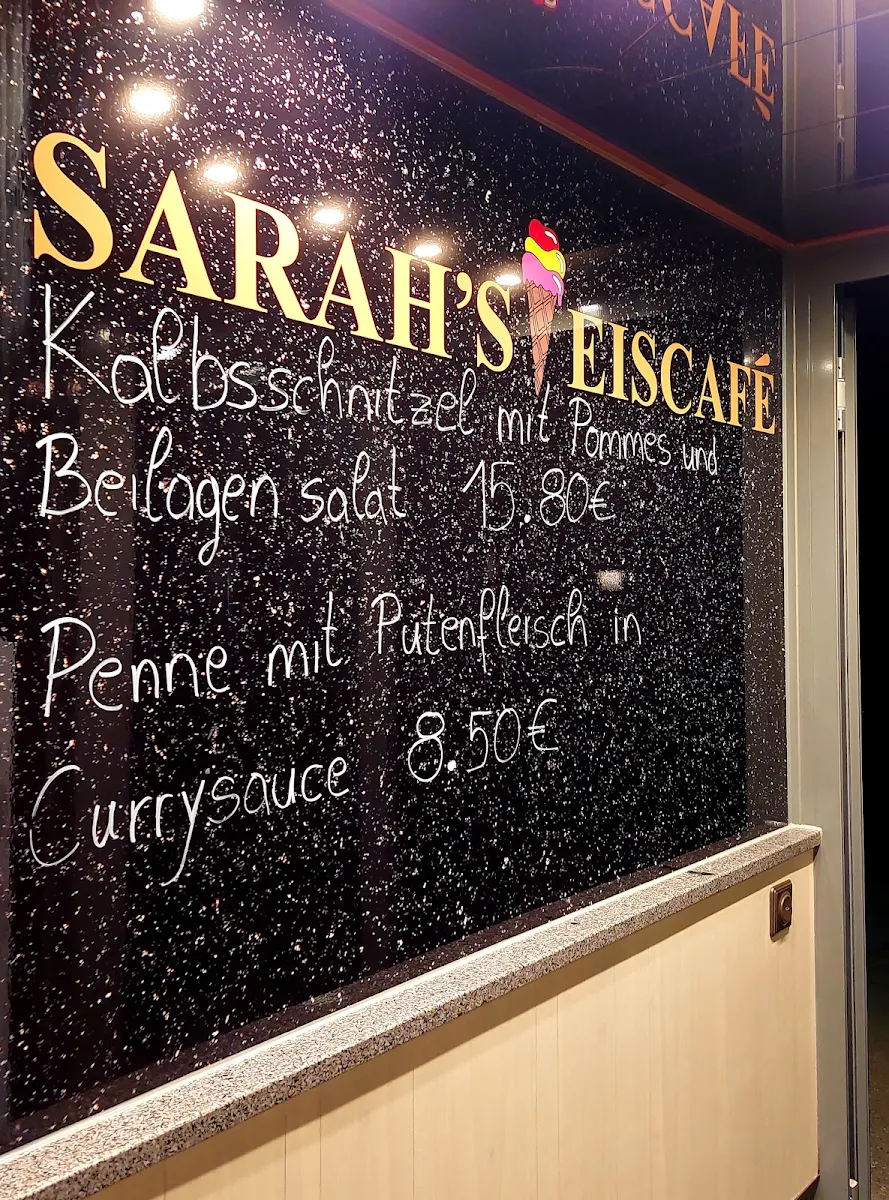 SARAH'S EISCAFÉ
Kalbsschnitzel mit Pommes und
Beilagen salat 15.80€
Penne mit Putenfleisch in
Currysauce 8.50€